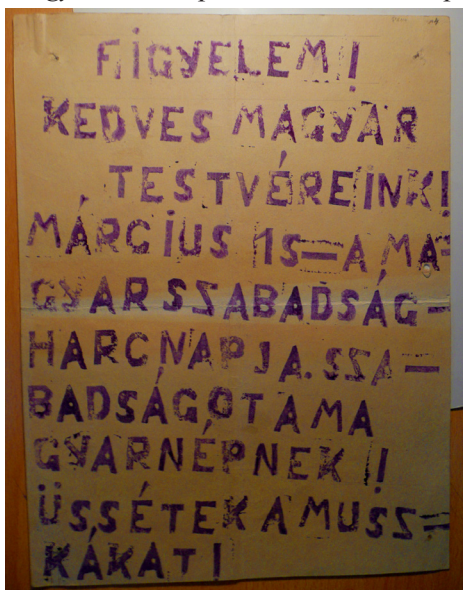 FIGYELEM!
KEDVES MAGYAR
TESTVÉREINK!
MÁRCIUS 15=A MA=
GYAR SZABADSÁG-
HARC NAPJA. SZA-
BADSÁGOT A MA
GYAR NÉPNEK!
ÜSSÉTEK A MUSZ=
KÁKAT!